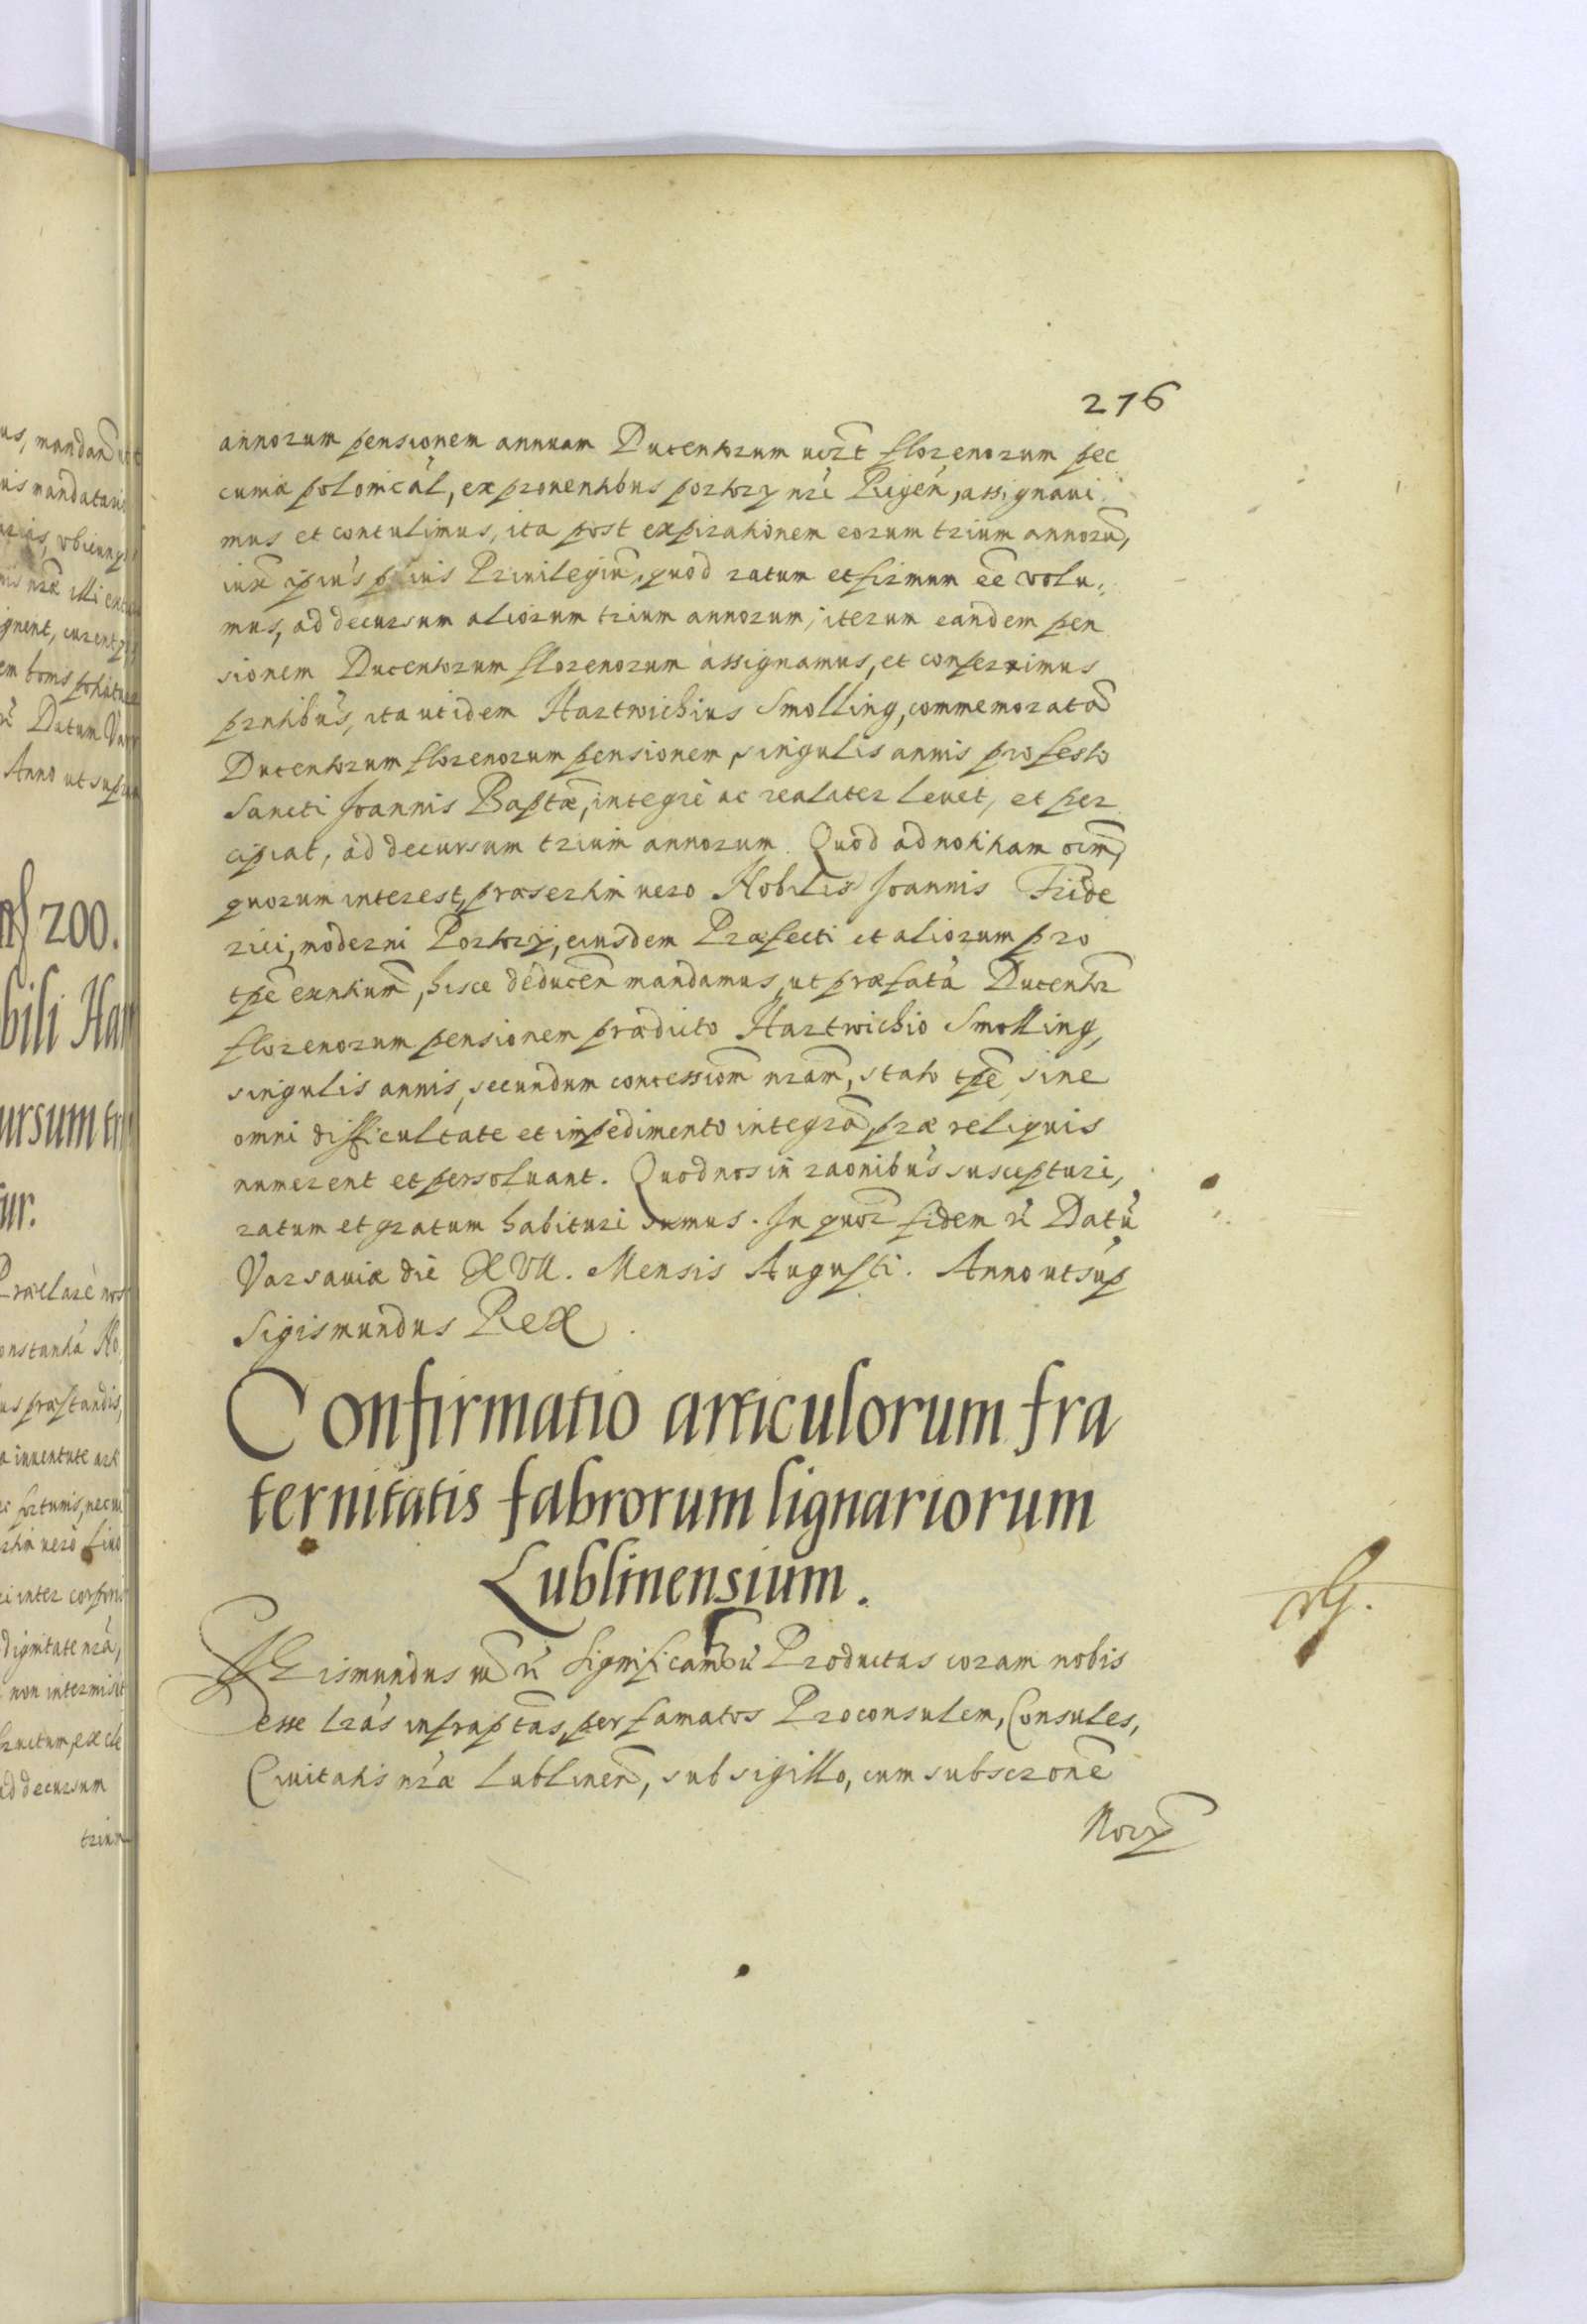 276
annorum pensionem annuam Ducentorum florenorum pec
cuniæ polonicál, ex proventibus portorÿ nrí Rigeń, assignaui
mus et contulimus, ita post expirationem eorum trium annorū,
Priuilegiū, quod ratum et firmum eē volu,
mus, ad decursum aliorum trium annorum, iterum eandem pen
sionem Ducentorum florenorum assignamus, et conferimus
prntibús, ita ut idem Hartwichius Smolling, commemoratā
Ducentorum florenorum pensionem, singulis annis pro festo
Sancti Joannis Baptæ, integrè ac realater leuet, et per
cipiat, ad decursum trium annorum. Quod ad notitiam oīm,
quorum interest, præsertim uero Nobilis Joannis Fride
rici, moderni Portorÿ, eiusdem Præfecti et aliorum pro
tpē exntium, hisce deducen mandamus, ut præfata Ducentor
florenorum pensionem prædicto Hartwichio Smolling,
singulis annis, secundum concessiom nram, stato tpē, sine
omni difficultate et impedimento integrā, præ reliquis
numerent et persoluant. Quod nos in raonibús suscepturi,
ratum et gratum habituri sumus. In quor fidem rí Datū
Varsauiæ die XVII. Mensis Augusti. Anno ut sup
Sigismundus Rex.
Confirmatio articulorum fra
ternitatis fabrorum lignariorum
Lublinensium.
Sigismundus rí Significam Productas coram nobis
esse lrás infraptas, per famatos Proconsulem, Consules,
Ciuitatis nræ Lublineñ, sub sigillo, cum subscrone
Nory
us, mandan
uis mandataris
gnent, curent
Datum Va
Anno ut supra
200.
bili Har
ursum tri
ur.
Præclare nos
onstantia
us præstandis,
a iuuentute
fortunis,
dignitate nrá,
non intermisit
ad decursum
trium